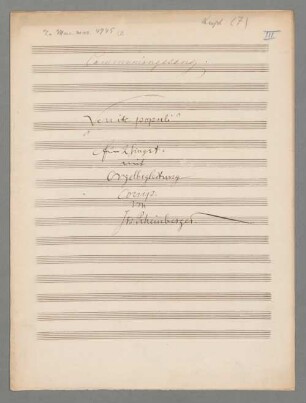 Zu Mus. mss. 4745
(7)
III.
Communiongesang.
Venite populi
für 2 Singst.
mit
Orgelbegleitung
comp.
von
Jos. Rheinberger.